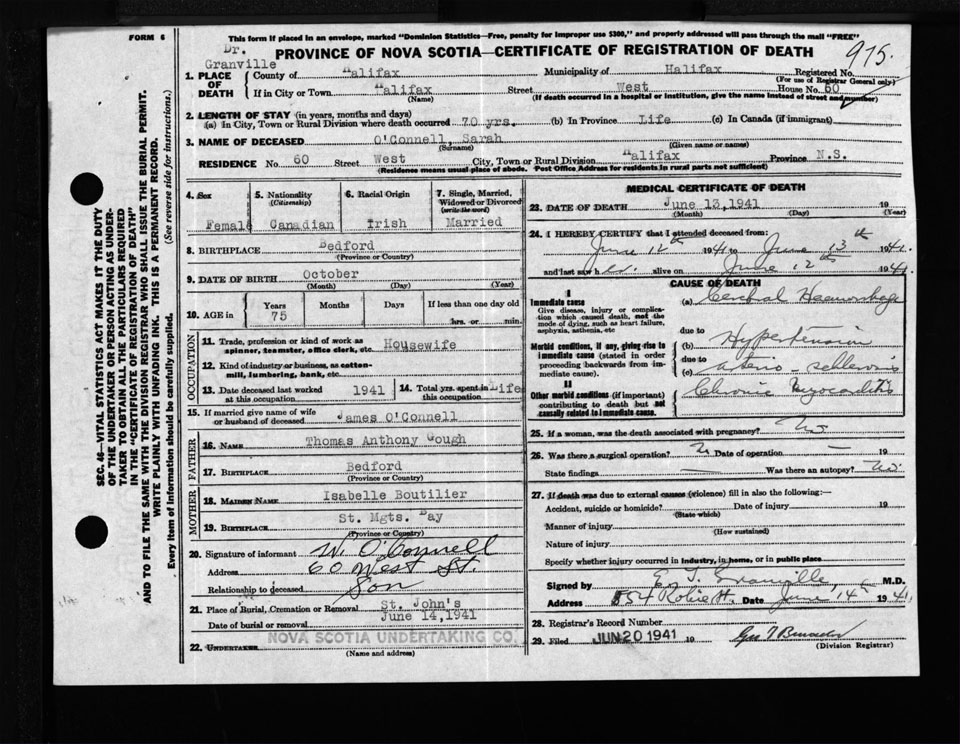 FORM 6
This form if placed in an envelope, marked "Dominion Statistics—Free, penalty for improper use $300," and properly addressed will pass through the mail "FREE"
PROVINCE OF NOVA SCOTIA—CERTIFICATE OF REGISTRATION OF DEATH
975.
Dr.
Granville
1. PLACE OF DEATH
County of Halifax Municipality of Halifax Registered No.
(For use of Registrar General only)
If in City or Town Halifax Street West House No. 60
(Name) (If death occurred in a hospital or institution, give the name instead of street and number)
2. LENGTH OF STAY (in years, months and days)
(a) In City, Town or Rural Division where death occurred 70 yrs. (b) In Province Life (c) In Canada (if immigrant)
3. NAME OF DECEASED O'Connell, Sarah
(Surname) (Given name or names)
RESIDENCE No. 60 Street West City, Town or Rural Division Halifax Province N.S.
(Residence means usual place of abode. Post Office Address for residents in rural parts not sufficient)
4. Sex 5. Nationality (Citizenship) 6. Racial Origin 7. Single, Married, Widowed or Divorced (write the word)
Female Canadian Irish Married
8. BIRTHPLACE Bedford
(Province or Country)
9. DATE OF BIRTH October
(Month) (Day) (Year)
10. AGE in Years Months Days If less than one day old
75 hrs. or min.
OCCUPATION
11. Trade, profession or kind of work as spinner, teamster, office clerk, etc. Housewife
12. Kind of industry or business, as cotton-mill, lumbering, bank, etc.
13. Date deceased last worked at this occupation 1941 14. Total yrs. spent in this occupation Life
15. If married give name of wife or husband of deceased James O'Connell
FATHER
16. NAME Thomas Anthony Gough
17. BIRTHPLACE Bedford
(Province or Country)
MOTHER
18. MAIDEN NAME Isabelle Boutilier
19. BIRTHPLACE St. Mgts. Bay
(Province or Country)
20. Signature of informant W. O'Connell
Address 60 West St.
Relationship to deceased Son
21. Place of Burial, Cremation or Removal St. John's
Date of burial or removal June 14,1941
22. UNDERTAKER NOVA SCOTIA UNDERTAKING CO.
(Name and address)
MEDICAL CERTIFICATE OF DEATH
23. DATE OF DEATH June 13,1941 19
(Month) (Day) (Year)
24. I HEREBY CERTIFY that I attended deceased from:
June 12th 1941 to June 13th 1941.
and last saw her alive on June 12th 1941
CAUSE OF DEATH
I
Immediate cause
Give disease, injury or complication which caused death, not the mode of dying, such as heart failure, asphyxia, asthenia, etc
(a) Cerebral Haemorrhage
due to
Morbid conditions, if any, giving rise to immediate cause (stated in order proceeding backwards from immediate cause).
(b) Hypertension
due to
(c) arterio-schlerosis
II
Other morbid conditions (if important) contributing to death but not causally related to immediate cause.
Chronic Myocarditis
25. If a woman, was the death associated with pregnancy? No
26. Was there a surgical operation? No Date of operation — 19
State findings — Was there an autopsy? No.
27. If death was due to external causes (violence) fill in also the following:—
Accident, suicide or homicide? Date of injury 19
(State which)
Manner of injury
(How sustained)
Nature of injury
Specify whether injury occurred in industry, in home, or in public place
Signed by E. T. Granville M.D.
Address 554 Robie St. Date June 14th 1941
28. Registrar's Record Number
29. Filed JUN 20 1941 19
(Division Registrar)
SEC. 46—VITAL STATISTICS ACT MAKES IT THE DUTY
OF THE UNDERTAKER OR PERSON ACTING AS UNDER-
TAKER TO OBTAIN ALL THE PARTICULARS REQUIRED
IN THE "CERTIFICATE OF REGISTRATION OF DEATH"
AND TO FILE THE SAME WITH THE DIVISION REGISTRAR WHO SHALL ISSUE THE BURIAL PERMIT.
WRITE PLAINLY WITH UNFADING INK. THIS IS A PERMANENT RECORD.
Every item of information should be carefully supplied. (See reverse side for instructions.)